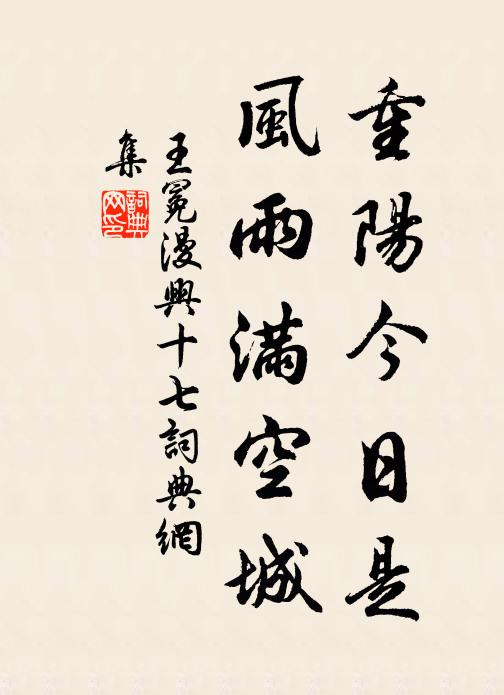 重陽今日是
風雨滿空城
王冕漫興十七詞典網
集
詞典網印